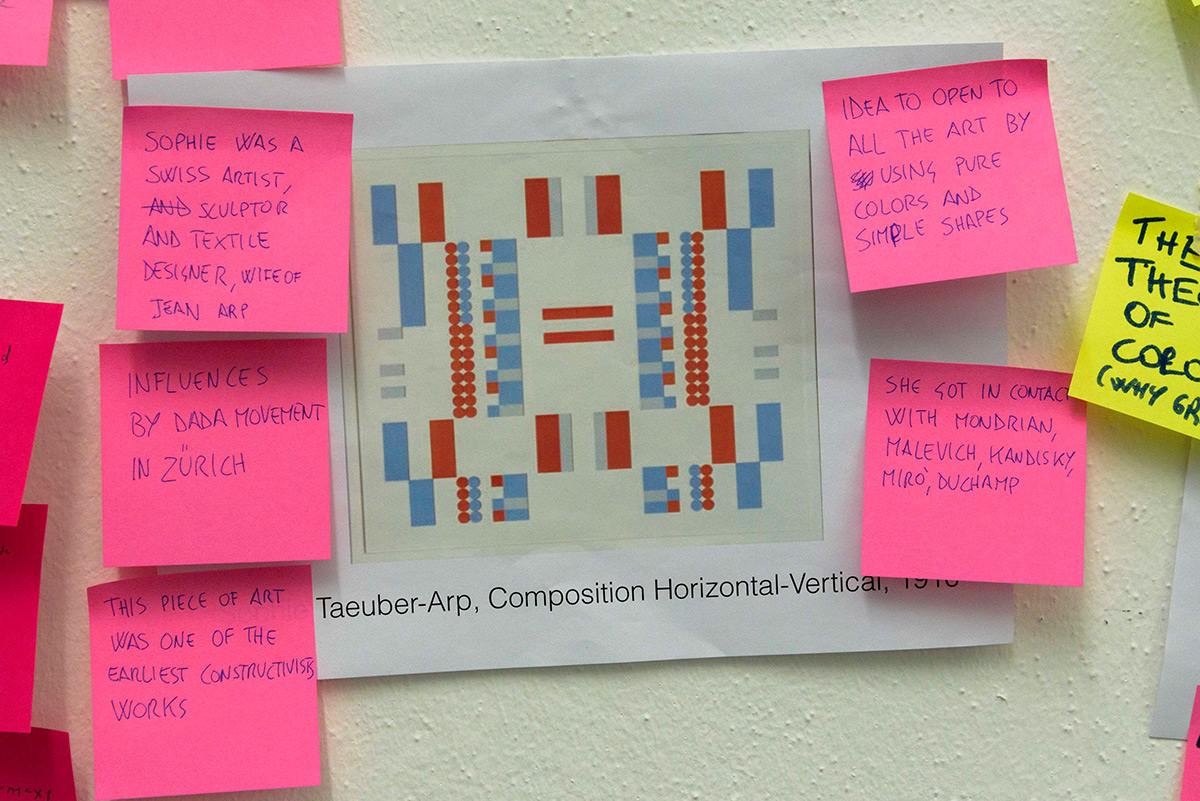 SOPHIE WAS A
SWISS ARTIST,
AND SCULPTOR
AND TEXTILE
DESIGNER, WIFE OF
JEAN ARP
INFLUENCES
BY DADA MOVEMENT
IN ZÜRICH
THIS PIECE OF ART
WAS ONE OF THE
EARLIEST CONSTRUCTIVISTS
WORKS
Taeuber-Arp, Composition Horizontal-Vertical,
IDEA TO OPEN TO
ALL THE ART BY
USING PURE
COLORS AND
SIMPLE SHAPES
SHE GOT IN CONTACT
WITH MONDRIAN,
MALEVICH, KANDISKY,
MIRÒ, DUCHAMP
OF
(WHY